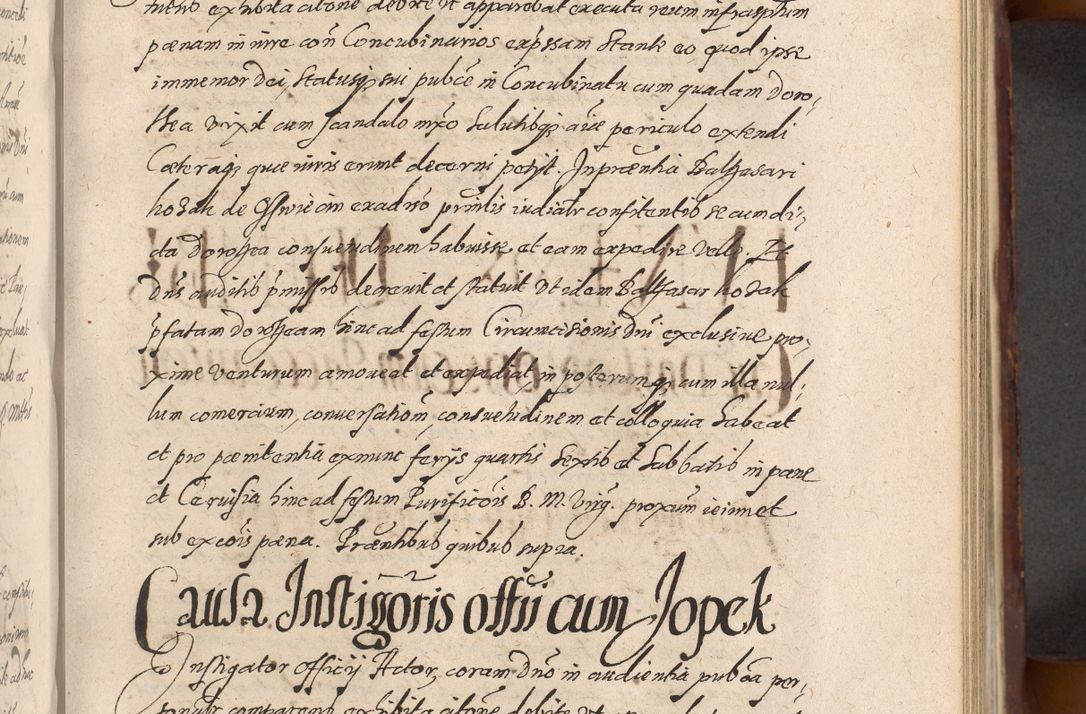 tutio exhibita citone debite ut apparebat executa reum infrasptum
pœnam in iure con Concubinarios exp̃ssam stante eo quod ipse
immemor Dei, statusq sui pubce in Concubinatu cum quadam Doro,
thea vixit cum scandalo mxo Salutisq aiæ periculo extendi
Cæteraq quæ iuris erunt decerni petyt. In præntia Balthasari
hodak de Osswiecim ex adũso prñtis iudialr confitentis se cum di,
cta Dorothea consuetudinem habuisse et eam expedire velle. Et
Dñs auditis p̃missis decrevit et statuit ut idem Balthasar hodak
p̃fatam Dorotheam hinc ad festum Circumcisionis Dñi exclusive pro,
xime venturum amoveat et expediat, in posterumq cum illa nul,
lum comercium, conversationem, consuetudinem et colloquia habeat
et pro pœnitentia exnunc ferys quartis Sextis et Sabbatis in pane
et Cervisia hinc ad festum Purificõis B. M. Virg. proxum ieiunet
sub excõis pœna. Præntibus quibus supra.
Causa Instigoris offii cum Jopek
Instigator Officij Actor, coram Dño in audientia pubca per,
sonalr comparens exhibita citone debite ut